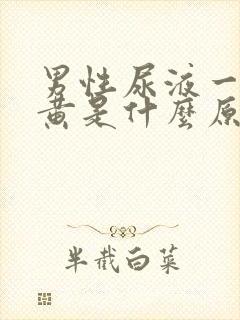 男性尿液一
黄是什麼原
半截白菜